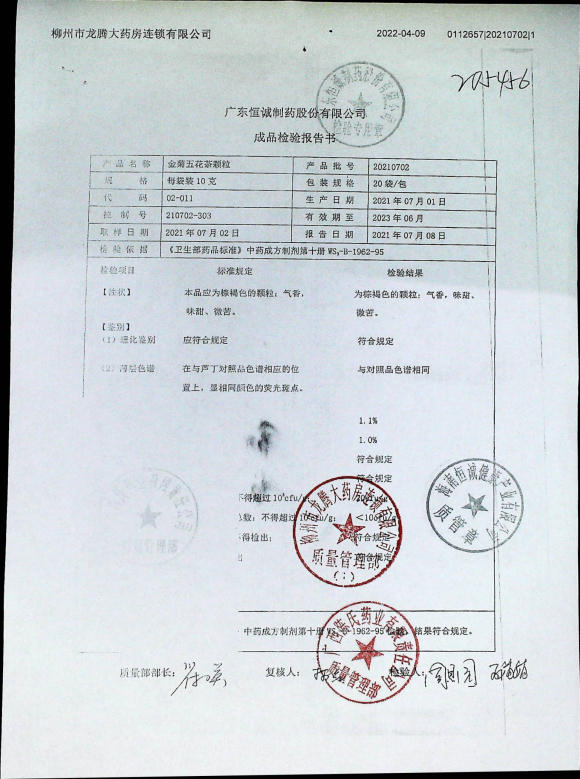 柳州市龙腾大药房连锁有限公司 2022-04-09 0112657|20210702|1
205456
广东恒诚制药股份有限公司
检验专用章
成品检验报告书
产品名称 金菊五花茶颗粒 产品批号 20210702
规格 每袋装10克 包装规格 20袋/包
代码 02-011 生产日期 2021年07月01日
控制号 210702-303 有效期至 2023年06月
取样日期 2021年07月02日 报告日期 2021年07月08日
检验依据 《卫生部药品标准》中药成方制剂第十册WS₃-B-1962-95
检验项目 标准规定 检验结果
【性状】 本品应为棕褐色的颗粒；气香， 为棕褐色的颗粒；气香，味甜、
味甜、微苦。 微苦。
【鉴别】
(1) 理化鉴别 应符合规定 符合规定
(2) 薄层色谱 在与芦丁对照品色谱相应的位 与对照品色谱相同
置上，显相同颜色的荧光斑点。
1.1%
1.0%
符合规定
符合规定
不得超过10³cfu/g;
总数：不得超过 cfu/g; <10cfu/g
不得检出； 符合规定
出 符合规定
柳州市龙腾大药房连锁有限公司
质量管理部
海南恒诚健康产业有限公司
质管章
中药成方制剂第十册WS₃-B-1962-95检验，结果符合规定。
广西陈氏药业有限责任公司
质量管理部
质量部部长： 复核人： 检验人：